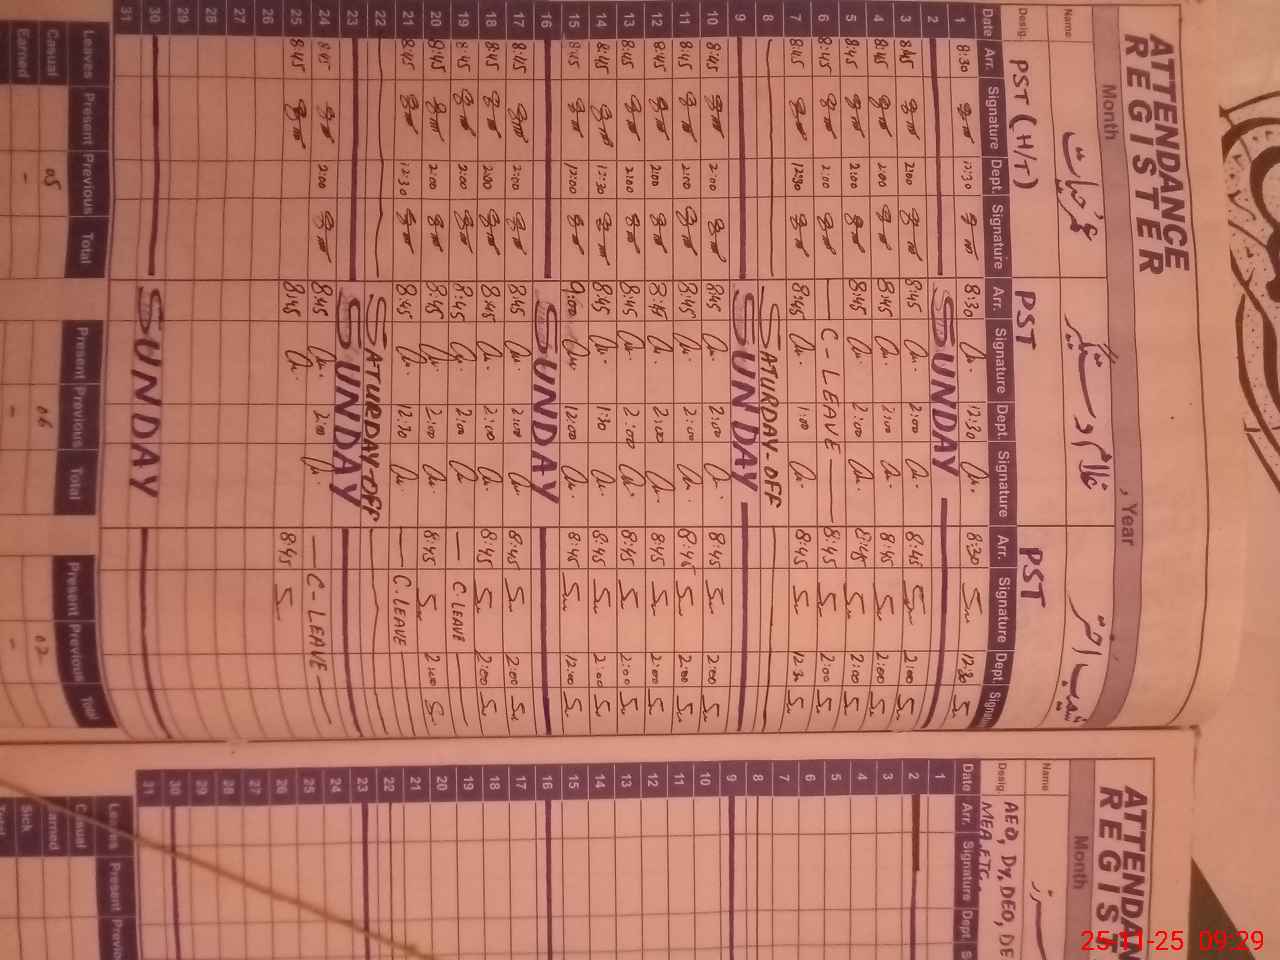 ATTENDANCE
REGISTER
Month , Year
Name
Desig. PST (H/T) PST PST
Date Arr. Signature Dept. Signature Arr. Signature Dept. Signature Arr. Signature Dept. Signature
1 8:30 12:30 8:30 12:30 8:30 12:30
2 SUNDAY
3 8:45 2:00 8:45 2:00 8:45 2:00
4 8:45 2:00 8:45 2:00 8:45 2:00
5 8:45 2:00 8:45 2:00 8:45 2:00
6 8:45 2:00 C-LEAVE 8:45 2:00
7 8:45 12:30 8:45 1:00 8:45 12:30
8 SATURDAY-OFF
9 SUNDAY
10 8:45 2:00 8:45 2:00 8:45 2:00
11 8:45 2:00 8:45 2:00 8:45 2:00
12 8:45 2:00 8:45 2:00 8:45 2:00
13 8:45 2:00 8:45 2:00 8:45 2:00
14 8:45 12:30 8:45 1:30 8:45 2:00
15 8:45 12:00 9:00 12:00 8:45 12:00
16 SUNDAY
17 8:45 2:00 8:45 2:00 8:45 2:00
18 8:45 2:00 8:45 2:00 8:45 2:00
19 8:45 2:00 8:45 2:00 C.LEAVE
20 8:45 2:00 8:45 2:00 8:45 2:00
21 8:45 12:30 8:45 12:30 C.LEAVE
22 SATURDAY-OFF
23 SUNDAY
24 8:45 2:00 8:45 2:00 C-LEAVE
25 8:45 8:45 8:45
26
27
28
29
30 SUNDAY
31
Leaves Present Previous Total Present Previous Total Present Previous Total
Casual 05 06 02
Earned - - -
ATTENDAN
REGIST
Month
Name
Desig. AEO, Dy. DEO, DE
MEA.ETC.
Date Arr. Signature Dept. S
1
2
3
4
5
6
7
8
9
10
11
12
13
14
15
16
17
18
19
20
21
22
23
24
25
26
27
28
29
30
31
Leaves Present Previo
Casual
Earned
Sick
Total
25-11-25 09:29